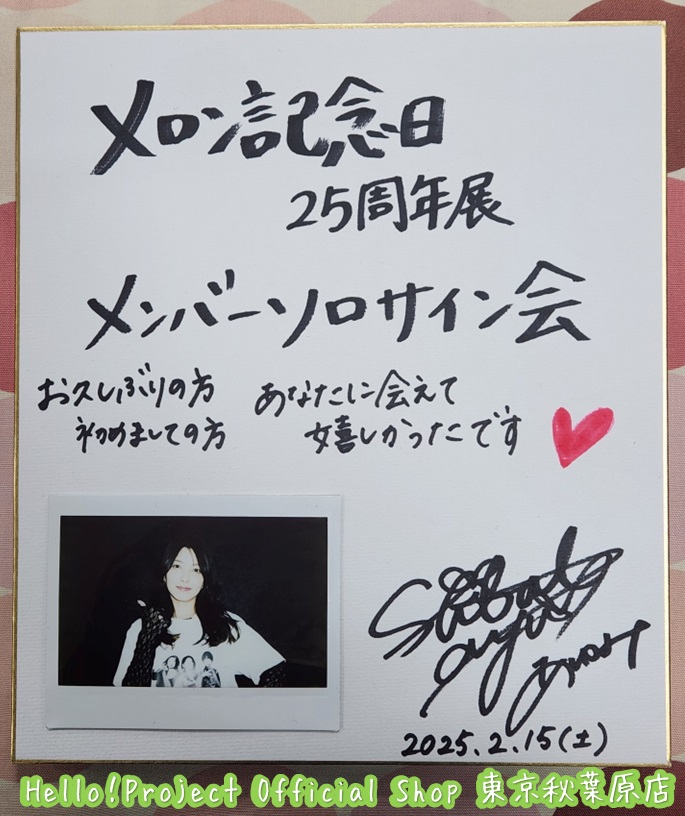 メロン記念日
25周年展
メンバーソロサイン会
お久しぶりの方 あなたに会えて
初めましての方 嬉しかったです
2025.2.15(土)
Hello!Project Official Shop 東京秋葉原店